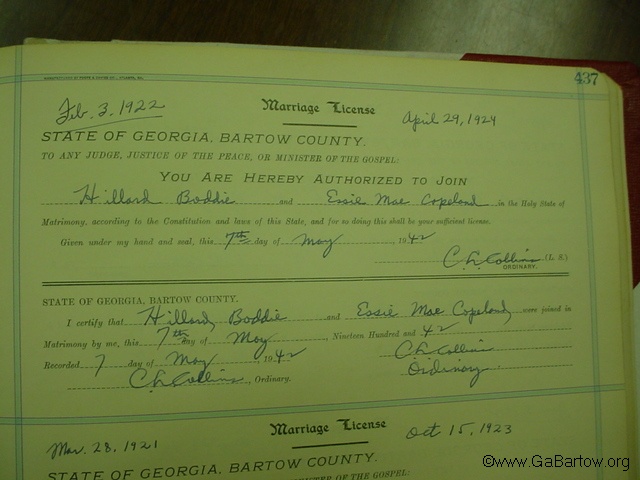 437
Feb. 3. 1922 Marriage License April 29, 1924
STATE OF GEORGIA, BARTOW COUNTY.
TO ANY JUDGE, JUSTICE OF THE PEACE, OR MINISTER OF THE GOSPEL:
YOU ARE HEREBY AUTHORIZED TO JOIN
Hillard Boddie and Essie Mae Copeland in the Holy State of
Matrimony, according to the Constitution and laws of this State, and for so doing this shall be your sufficient license.
Given under my hand and seal, this 7th day of May, 1942
C. L. Collins (L. S.)
ORDINARY.
STATE OF GEORGIA, BARTOW COUNTY.
I certify that Hillard Boddie and Essie Mae Copeland were joined in
Matrimony by me, this 7th day of May Nineteen Hundred and 42
Recorded 7 day of May, 1942 C L Collins
C. L. Collins, Ordinary. Ordinary
Marriage License
Mar. 28, 1921 Oct 15, 1923
STATE OF GEORGIA, BARTOW COUNTY.
MINISTER OF THE GOSPEL:
©www.GaBartow.org